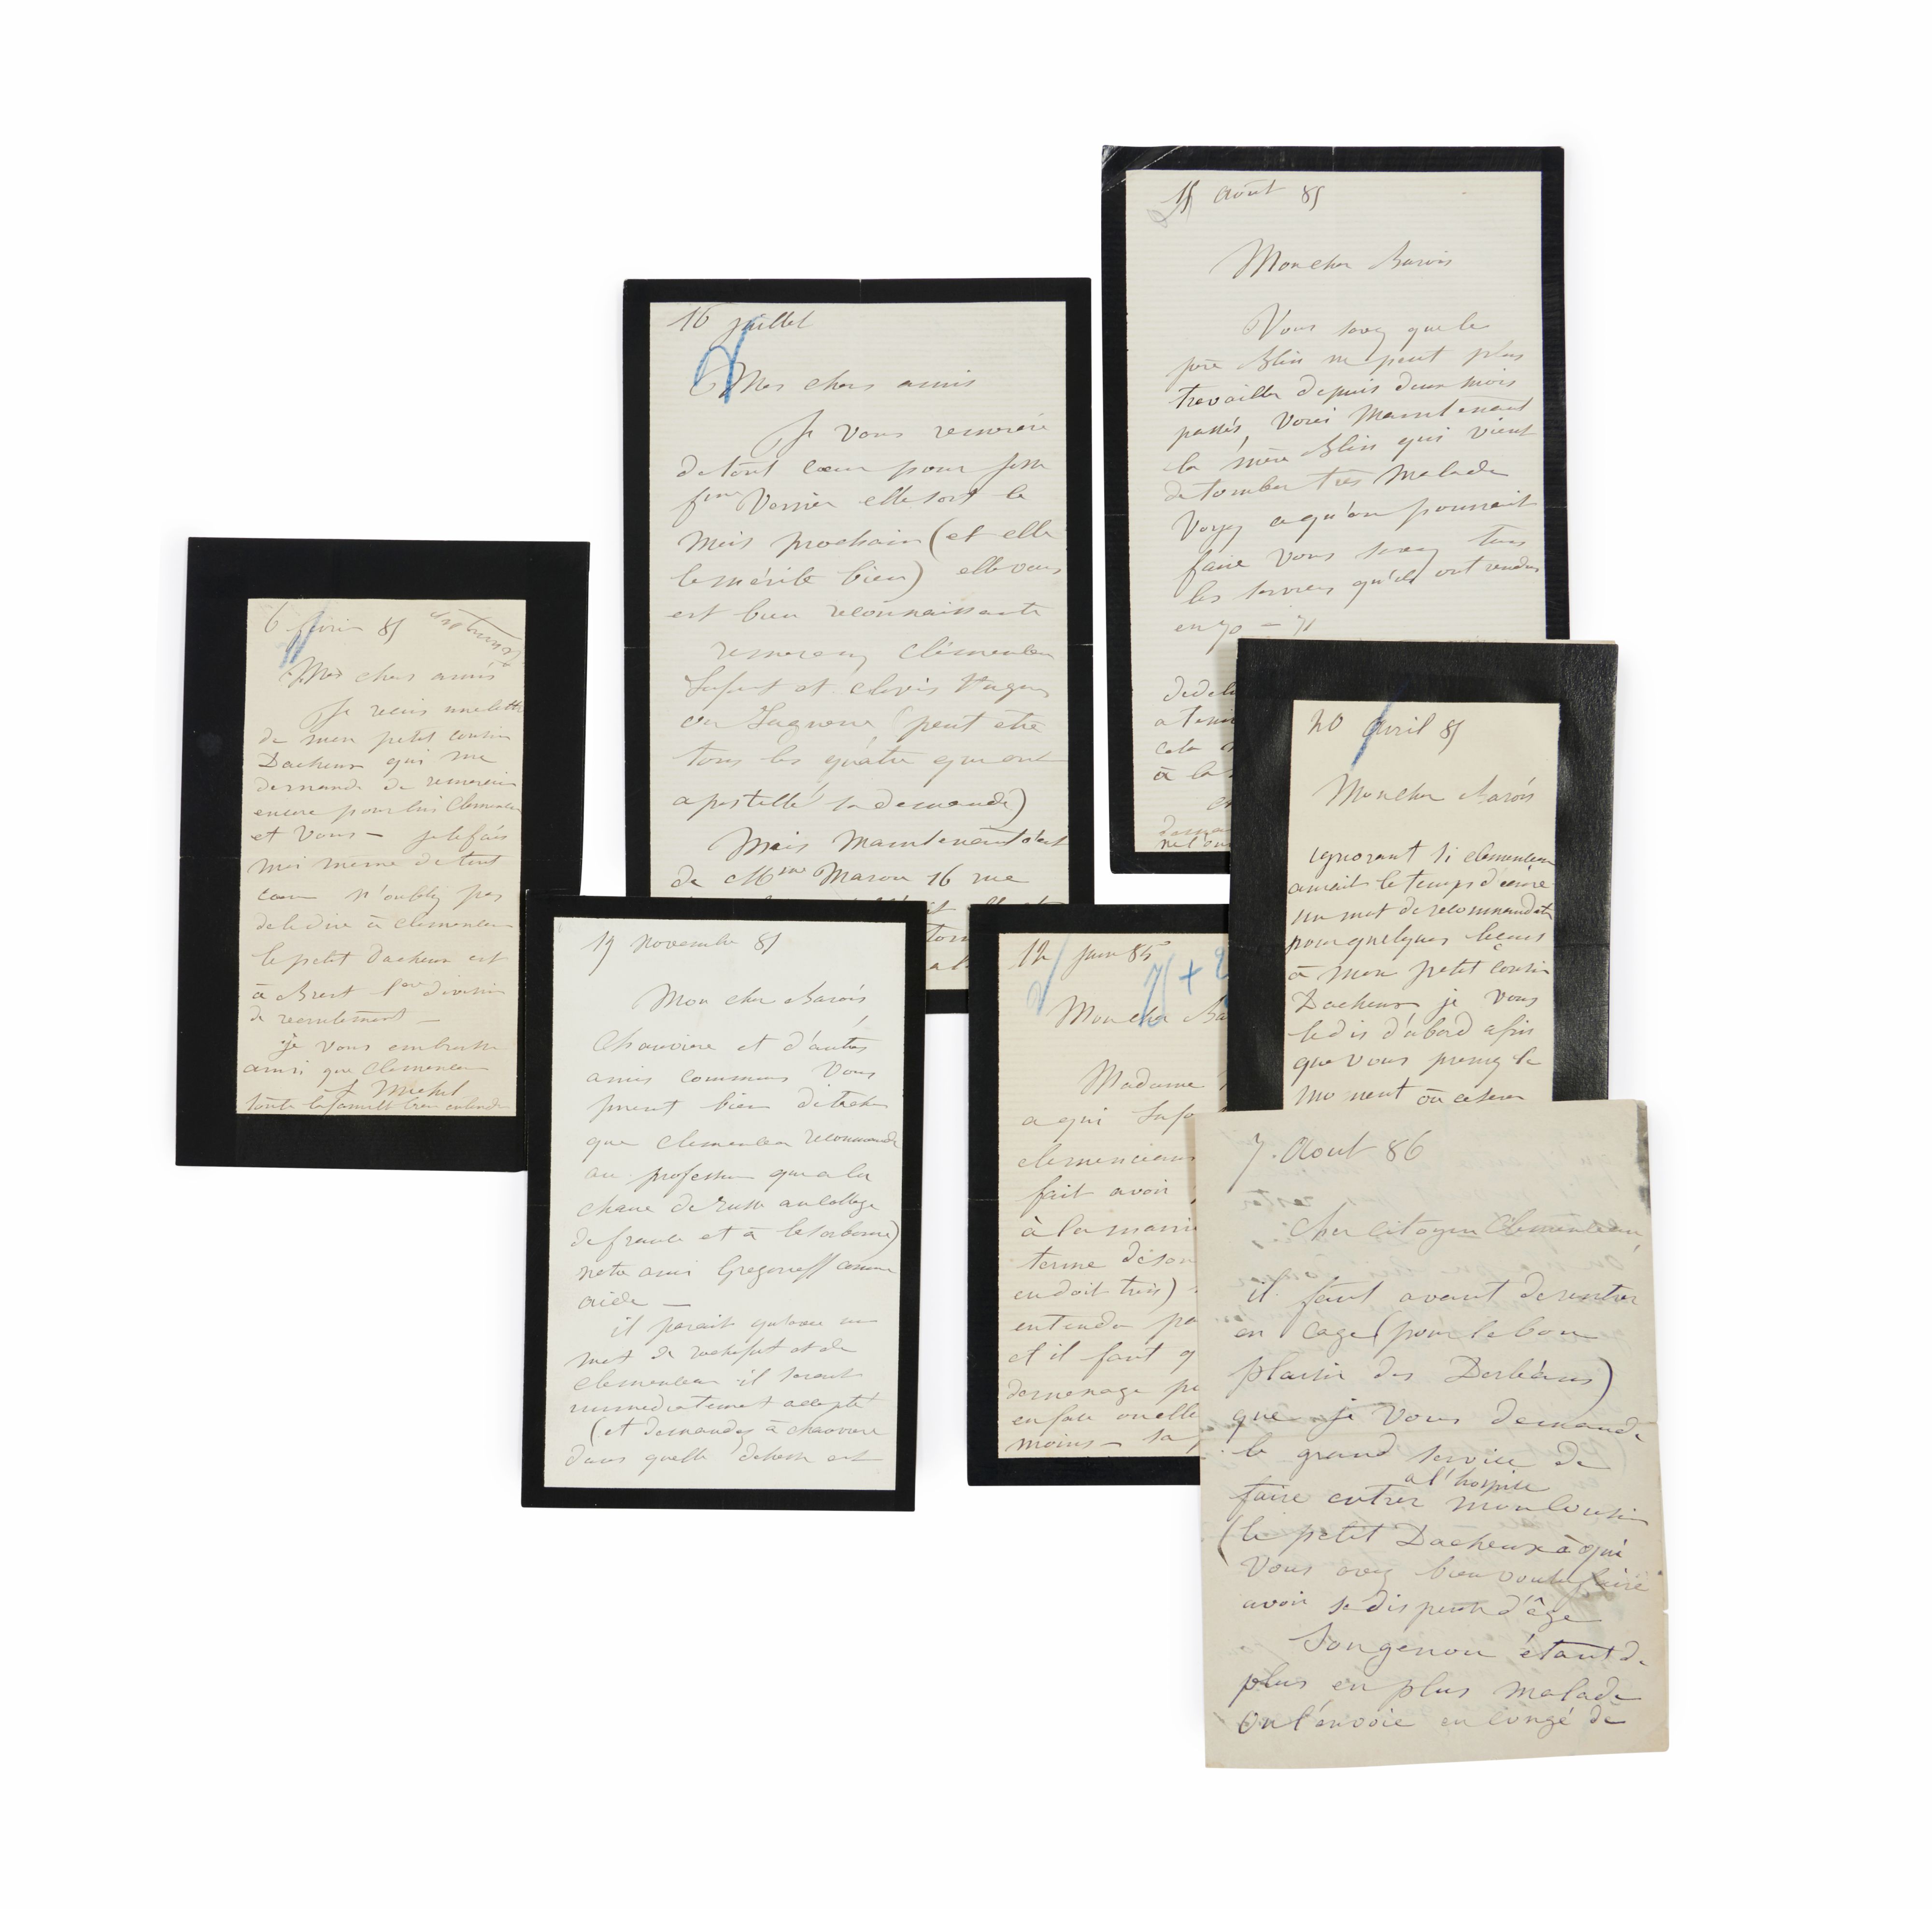 6 fevrier 85
Mes chers amis
Je reçois une lettre
de mon petit cousin
Dacheux qui me
demande de remercier
encore pour lui Clemenceau
et vous – je le fais
moi meme de tout
cœur n'oubliez pas
de le dire à clemenceau
le petit Dacheux est
à Brest 1ere division
de recrutement –
je vous embrasse
ainsi que Clemenceau
L Michel
toute la famille bien entendu
16 juillet
Mes chers amis
Je vous remercie
de tout cœur pour
Verrier elle sort le
mois prochain (et elle
le mérite bien) elle vous
est bien reconnaissante
remerciez Clémenceau
Lafont et clovis Hugues
ou Laguerre (peut etre
tous les quatre qui ont
apostillé sa demande)
Mais Maintenant c'est
de Mme Marou 16 rue
15 Août 85
Mon cher Barois
Vous savez que le
père Blin ne peut plus
travailler depuis deux mois
passés, voici Maintenant
la mère Blin qui vient
de tomber très Malade
Voyez ce qu'on pourrait
faire vous savez tous
les services qu'ils ont rendus
en 70 – 71
à la
19 novembre 85
Mon cher Barois
Chauviere et d'autres
amis communs vous
prient bien de tacher
que clemenceau recommande
au professeur qui a la
chaire de russe au college
de france et à la sorbonne)
notre ami Gregorieff comme
aide –
il parait qu'avec un
mot de rochefort et de
clemenceau il serait
immediatement accepté
(et demandez à chauviere
dans quelle detresse est
12 juin 85
7 +
Mon cher Ba
Madame
a qui Lafo
clemenceau
fait avoir
à la mairie
terme
en doit trois)
entendu pa
et il faut q
demenage pa
en face ou elle
moins – sa
20 avril 85
Mon cher Barois
ignorant si clemenceau
aurait le temps d'écrire
un mot de recommandation
pour quelques leçons
à mon petit cousin
Dacheux je vous
le dis d'abord afin
que vous preniez le
moment où ce sera
7. Aout 86
Cher citoyen Clemenceau,
il faut avant de rentrer
en cage (pour le bon
plaisir des Dorléans)
que je vous demande
le grand service de
faire entrer à l'hospice mon cousin
(le petit Dacheux à qui
vous avez bien voulu faire
avoir sa dispense d'âge
Son genou étant de
plus en plus malade
on l'envoie en congé de